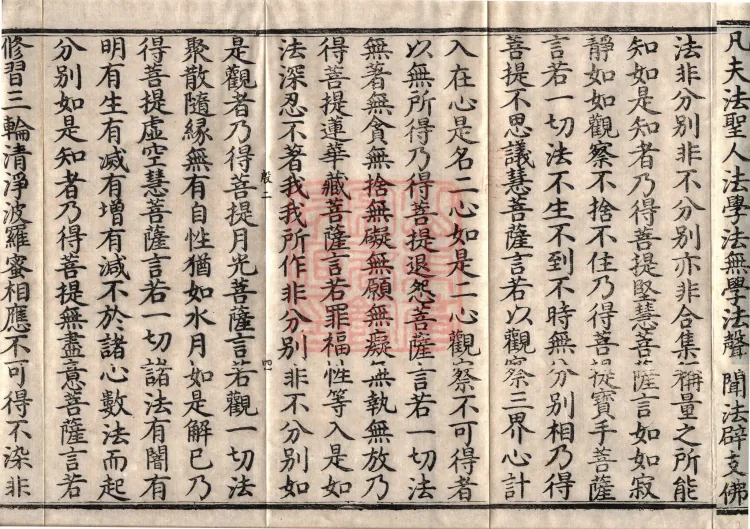 凡夫法聖人法學法無學法聲聞法辟支佛
法非分別非不分別亦非合集稱量之所能
知如是知者乃得菩提堅慧菩薩言如如寂
靜如如觀察不捨不住乃得菩提寶手菩薩
言若一切法不生不到不時無分別相乃得
菩提不思議慧菩薩言若以觀察三界心計
入在心是名二心如是二心觀察不可得者
以無所得乃得菩提退怨菩薩言若一切法
無著無貪無捨無礙無願無癡無執無放乃
得菩提蓮華藏菩薩言若罪福性等入是如
法深忍不著我我所作非分別非不分別如
是觀者乃得菩提月光菩薩言若觀一切法
聚散隨緣無有自性猶如水月如是解已乃
得菩提虛空慧菩薩言若一切諸法有闇有
明有生有滅有增有減不於諸心數法而起
分別如是知者乃得菩提無盡意菩薩言若
修習三輪清淨波羅蜜相應不可得不染非